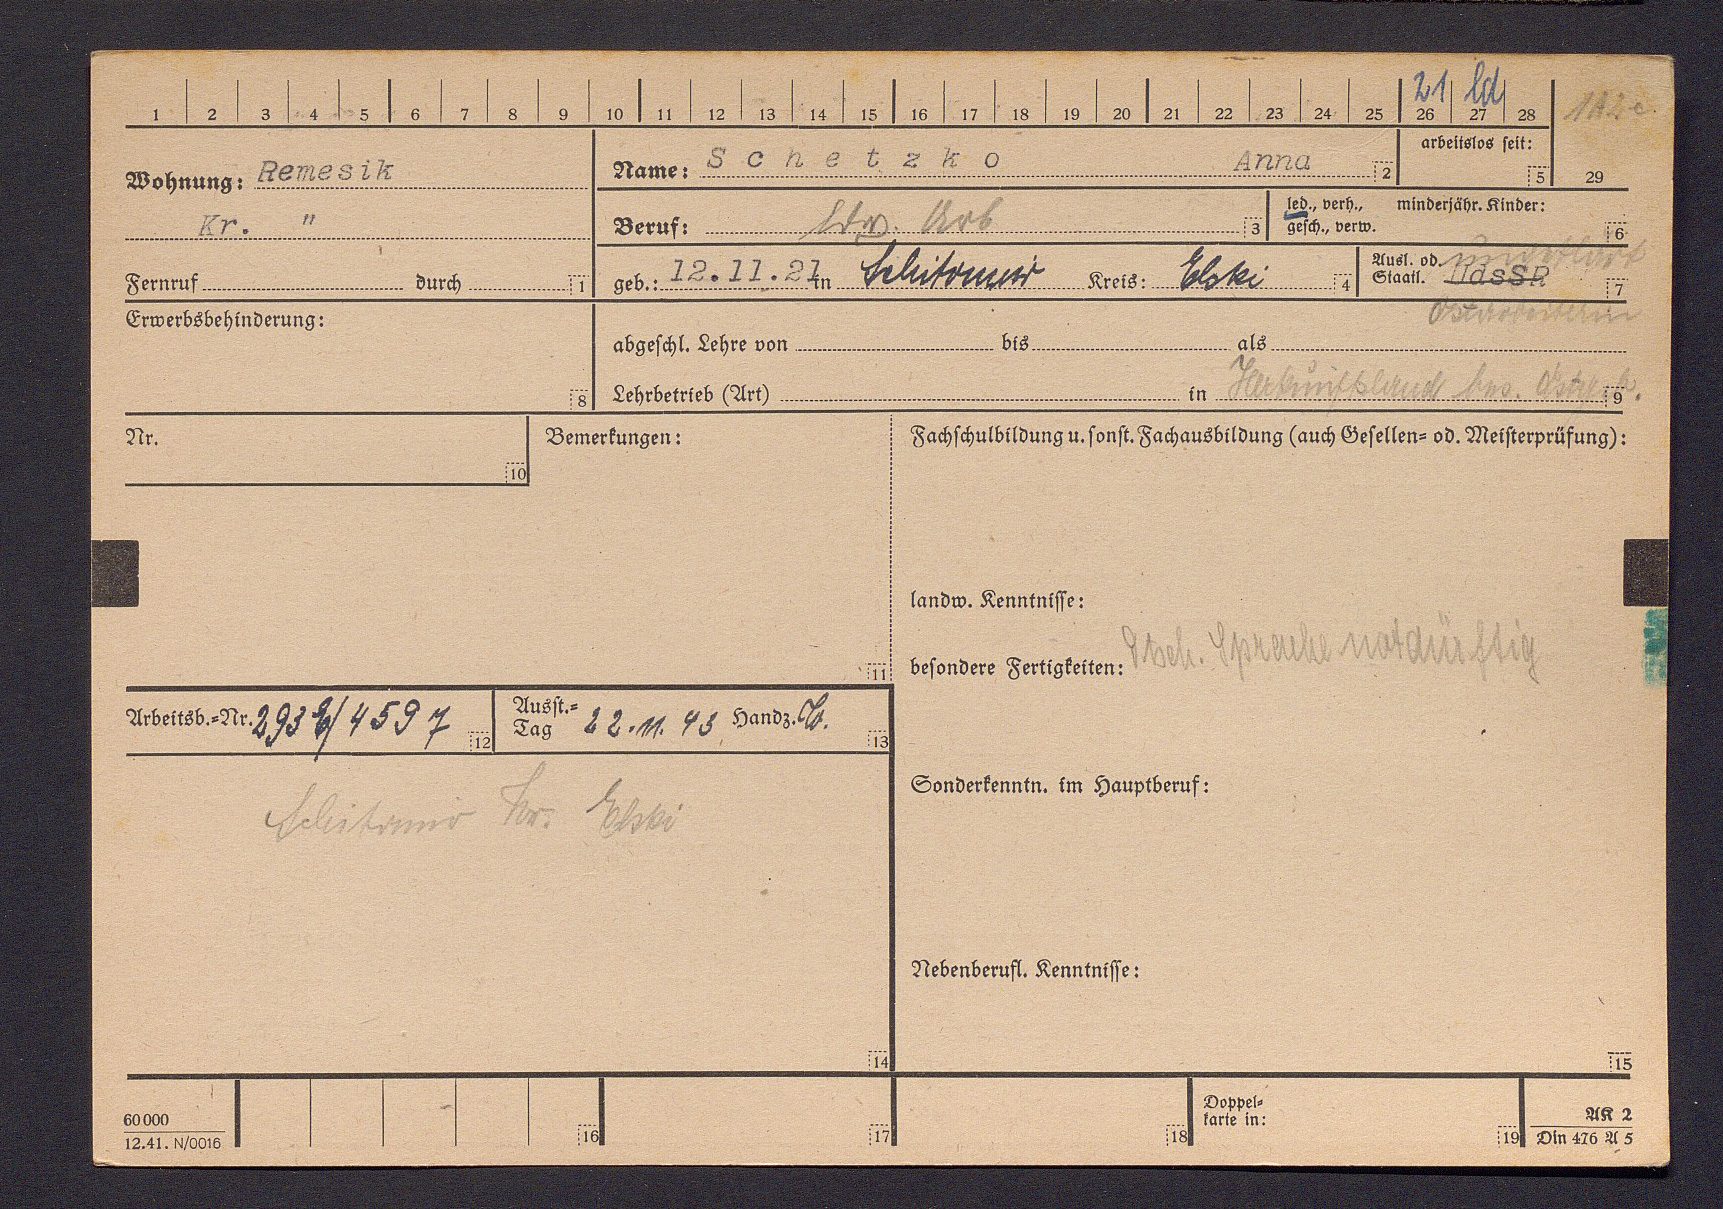 1 2 3 4 5 6 7 8 9 10 11 12 13 14 15 16 17 18 19 20 21 22 23 24 25 26 27 28
21 ld
1A2c
arbeitslos seit: 5
29
Wohnung: Remesik
Kr. "
Name: Schetzko Anna 2
Beruf: ldw. Arb 3
led., verh., minderjähr. Kinder:
gesch., verw. 6
Fernruf durch 1
geb.: 12.11.21 in Schitomir Kreis: Elski 4
Ausl. od.
Staatl. UdSSR 7
ungeklärt
Ostarbeiterin
Erwerbsbehinderung: 8
abgeschl. Lehre von bis als
Lehrbetrieb (Art) in 9
Herkunftsland bes. Ostgeb.
Nr. 10
Bemerkungen: 11
Fachschulbildung u. sonst. Fachausbildung (auch Gesellen= od. Meisterprüfung):
landw. Kenntnisse:
besondere Fertigkeiten: Dtsch. Sprache notdürftig
Arbeitsb.=Nr. 293 /4597 12
Ausst.=
Tag 22.11.43 Handz. 13
Schitomir Kr. Elski
Sonderkenntn. im Hauptberuf:
Nebenberufl. Kenntnisse:
14
15
60 000
12.41. N/0016
16
17
18
Doppel=
karte in: 19
AK 2
Din 476 A 5